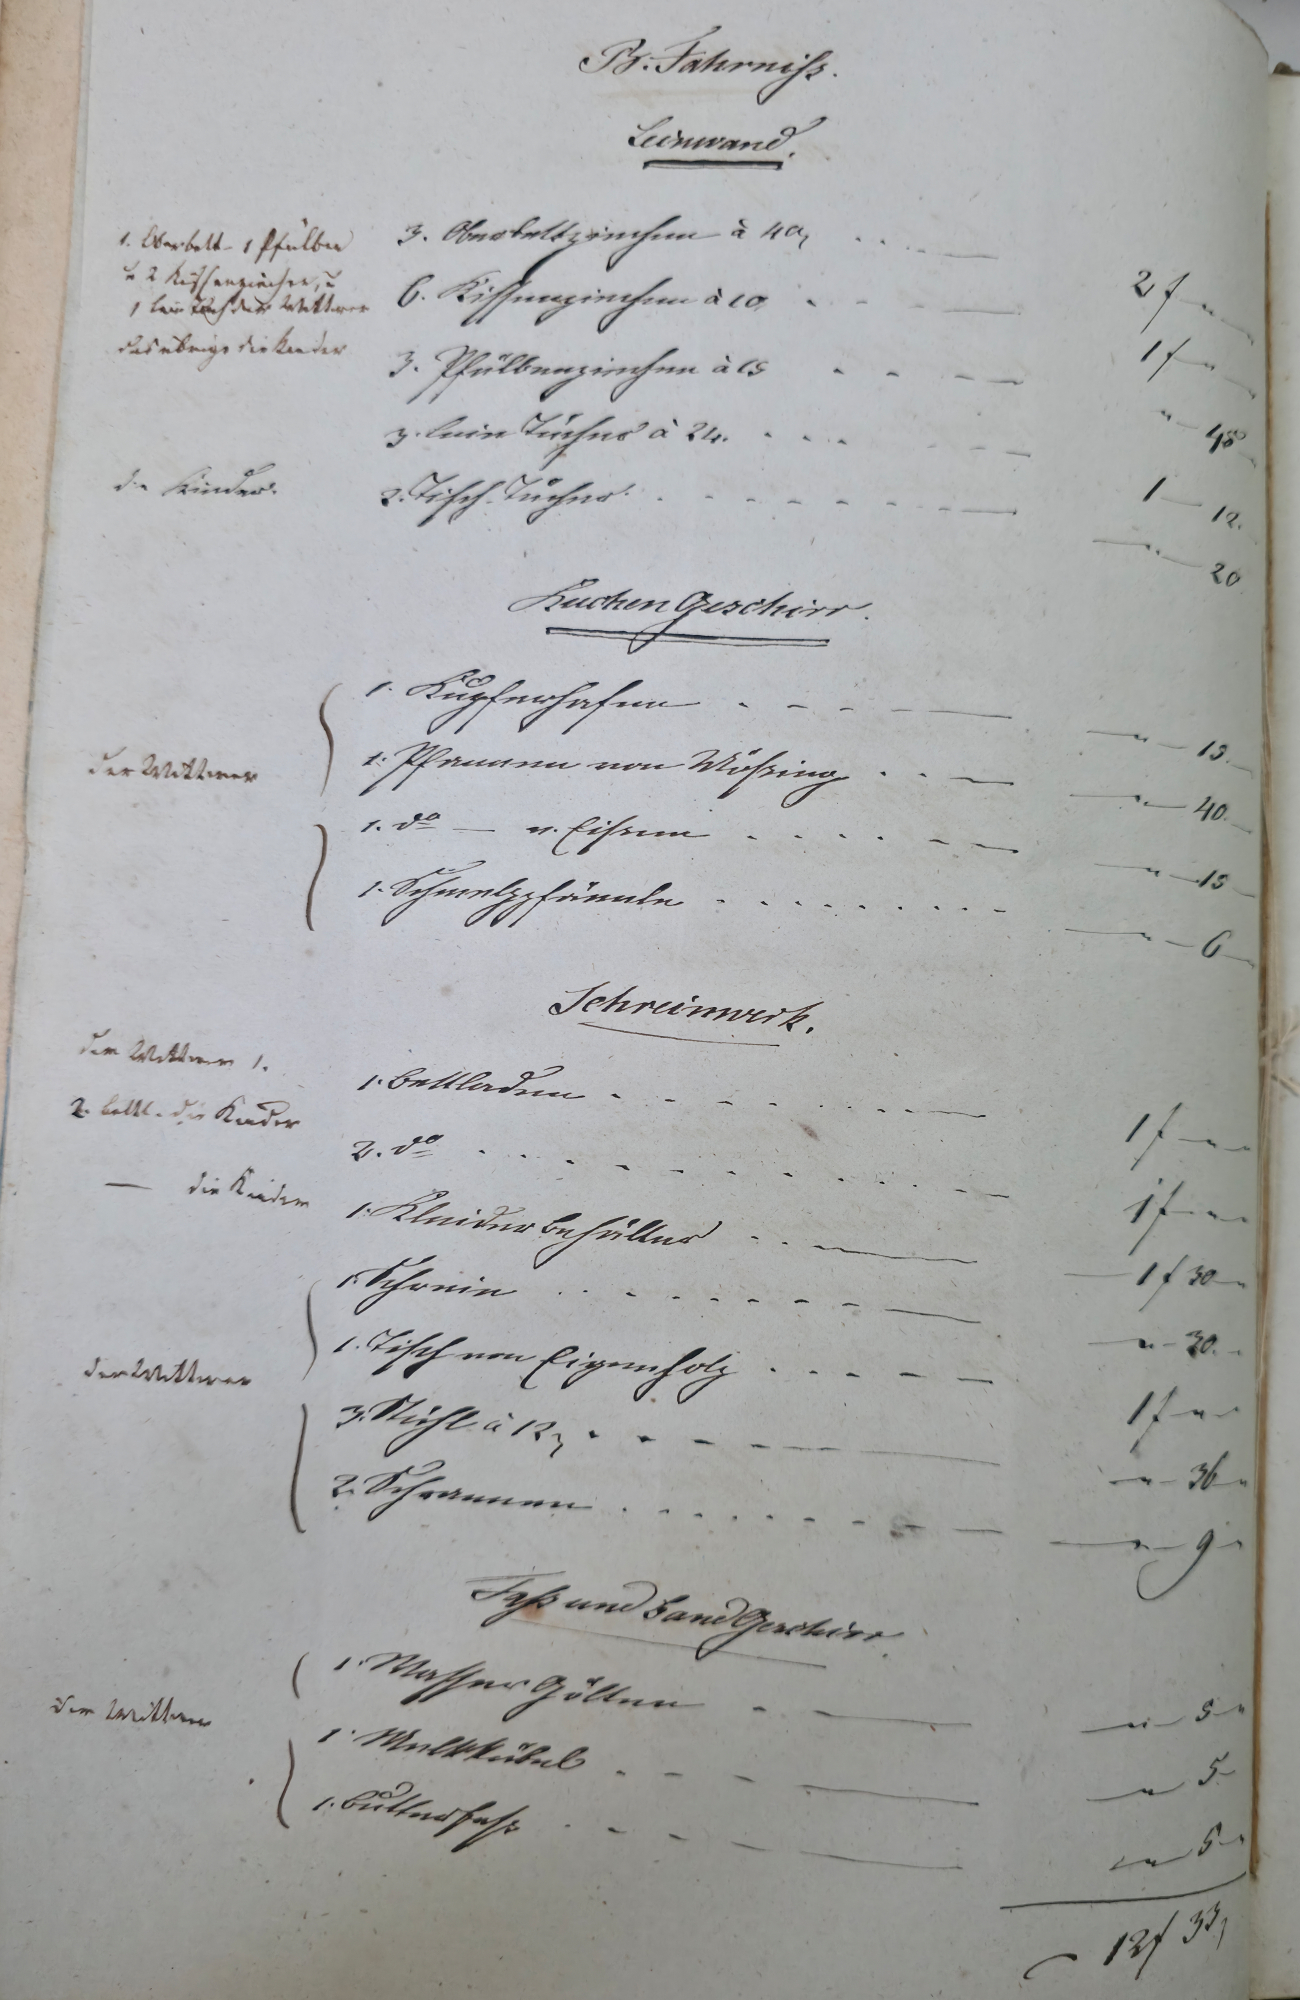 Pr. Fahrniß.
Leinwand.
1. Oberbett- 1 Pfülben
u 2 Kissenziechen, u
1 lein Tuch der Wittwer
das übrige die Kinder
3. Oberbettziechen à 40, 2 f "
6. Kissenziechen à 10 1 f "
3. Pfülbenziechen à 15 " 45
3. leine Tücher à 24. 1 12.
die Kinder. 2. Tisch-Tücher. " 20
KüchenGeschirr.
1. Kupferhafen " 15.
der Wittwer 1. Pfannen von Mößing " 40.
1. do v. Eisen " 15
1. Schmelzpfännle " 6
Schreinwerk.
dem Wittwer 1. 1. Bettladen 1 f "
2. Bettl. die Kinder 2. do 1 f "
die Kinder 1. Kleiderbehälter 1 f 30
1. Schrein " 30.
der Wittwer 1. Tisch von Eigenholz 1 f "
3. Stühl à 12 " 36
2. Schrannen " 9
Faß und BandGeschirr
1. Wasser Gölten " 5
der Wittwer 1. Melkkübel " 5
1. Butterfaß " 5
12 f 33